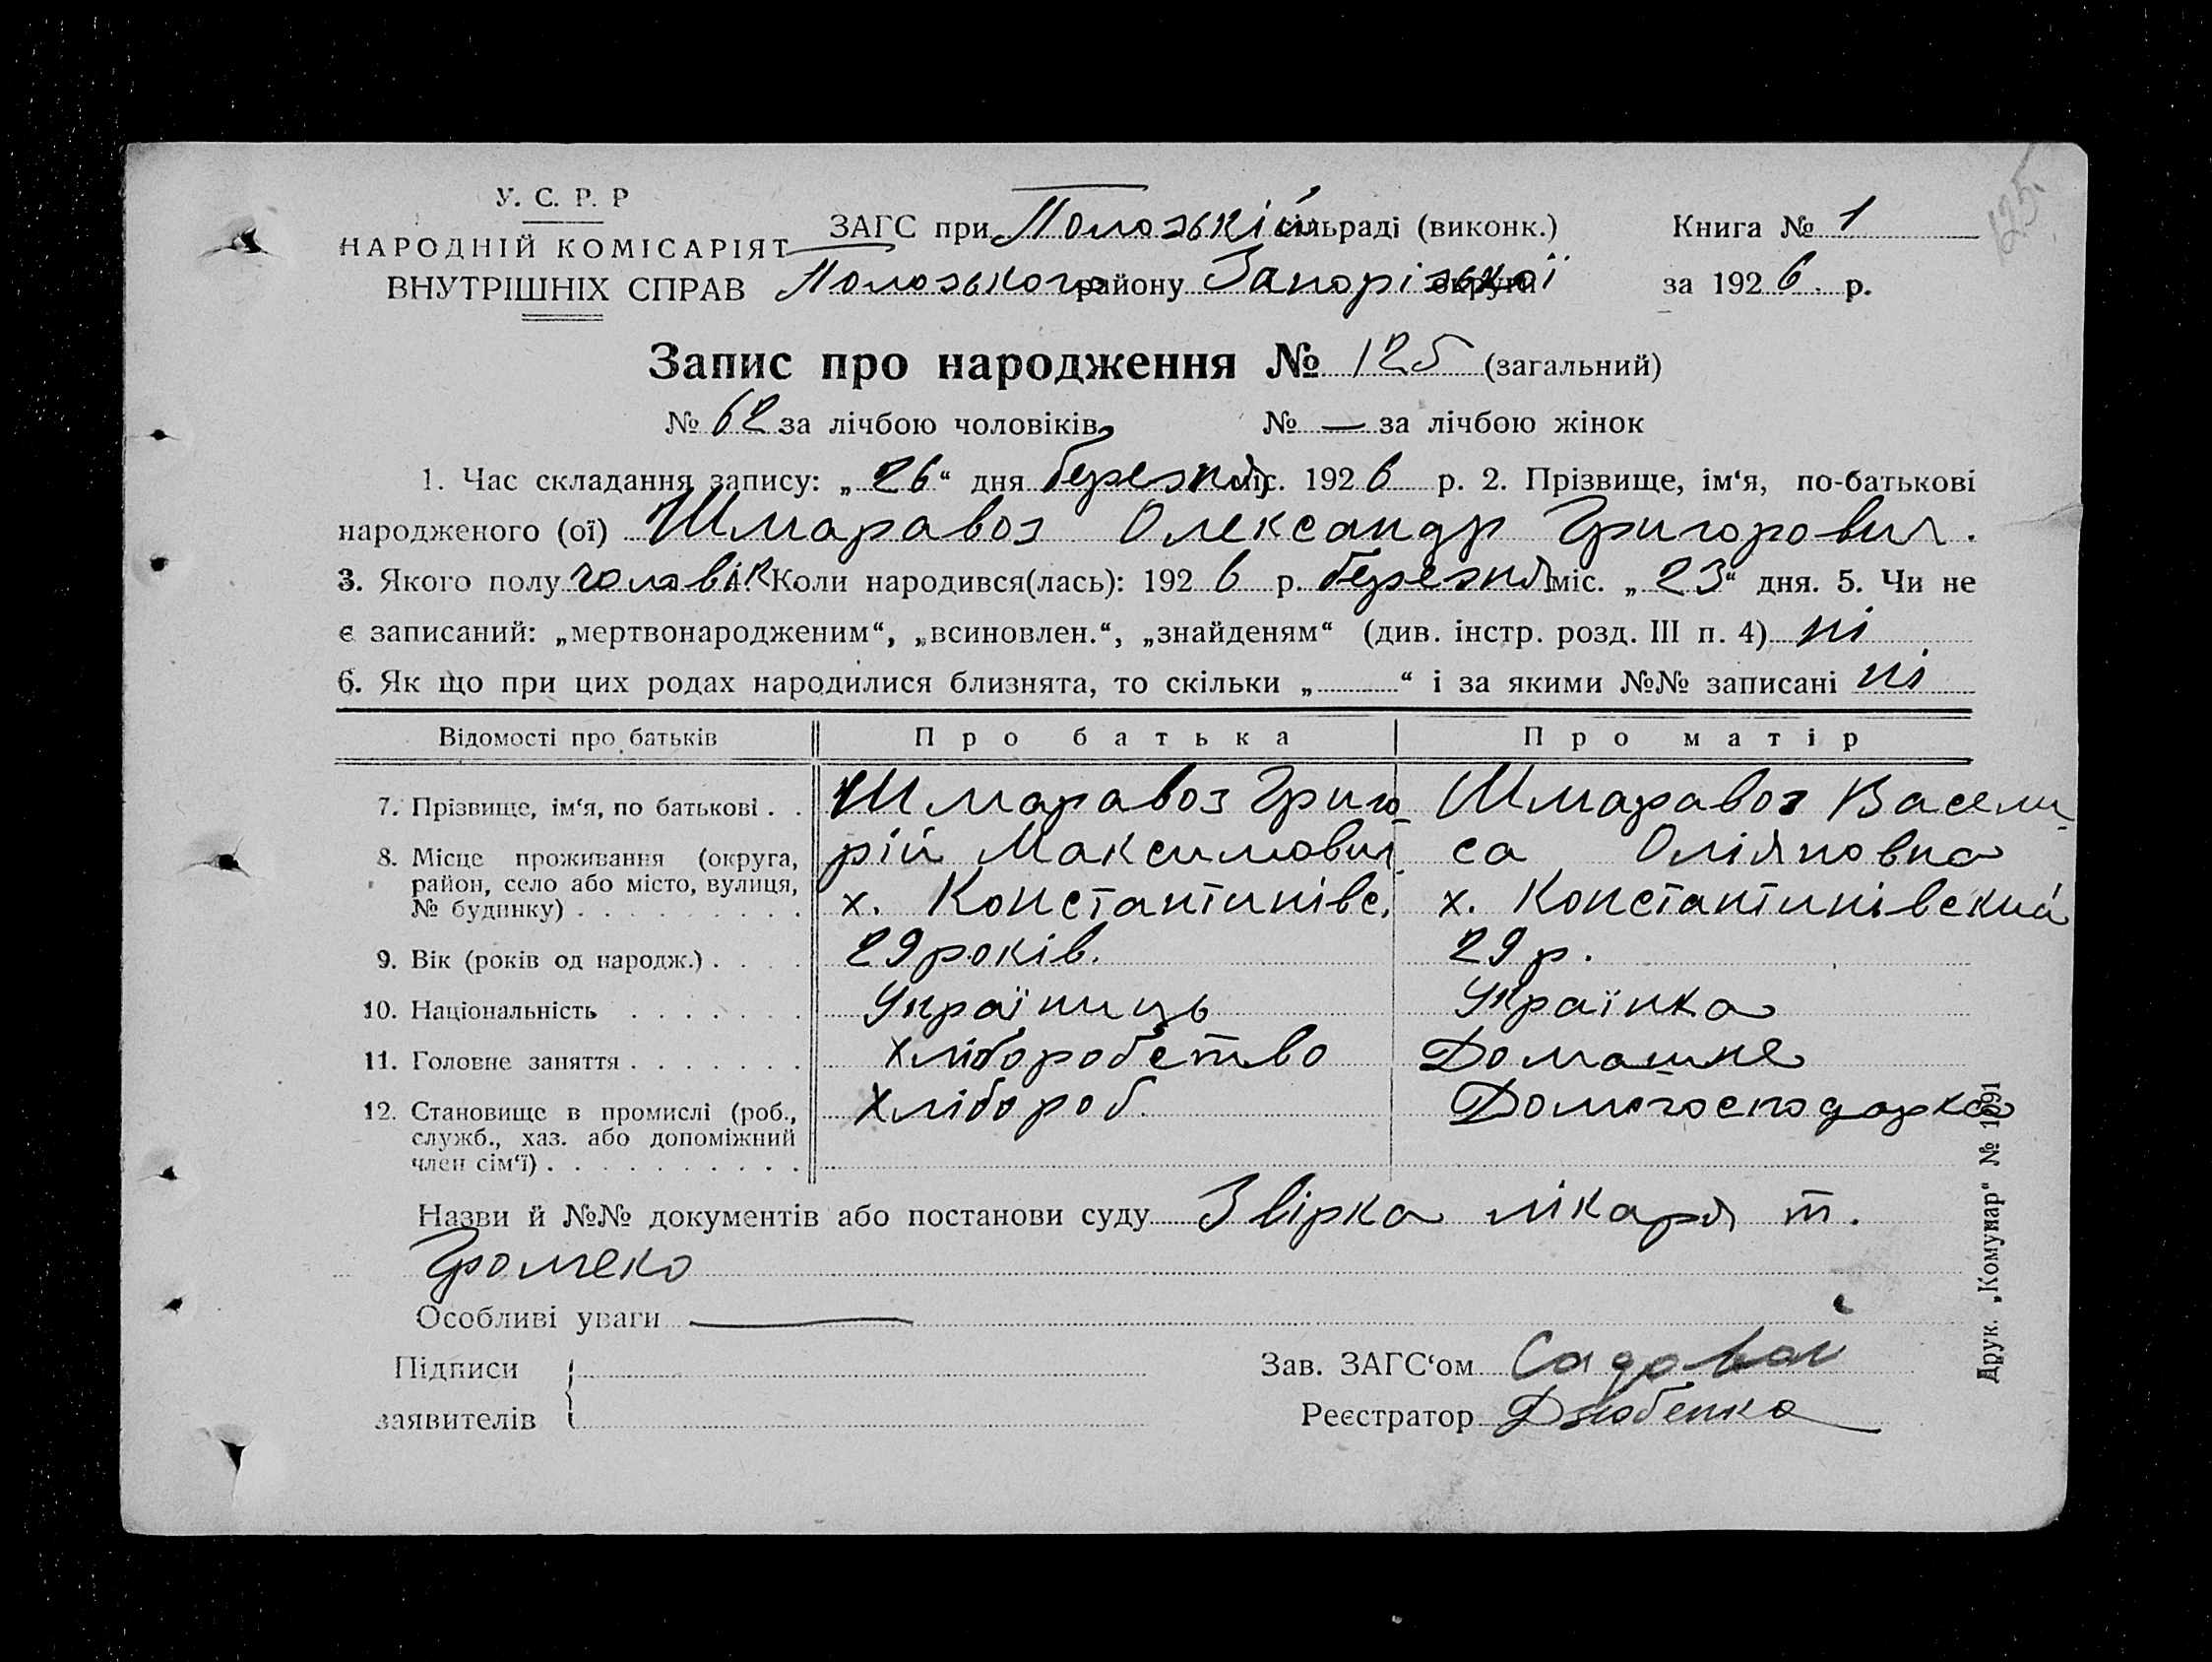 125.
У. С. Р. Р
НАРОДНІЙ КОМІСАРІЯТ
ВНУТРІШНІХ СПРАВ
ЗАГС при Пологській сільраді (виконк.)
Пологського району Запорізької округи
Книга № 1
за 1926 р.
Запис про народження № 125 (загальний)
№ 62 за лічбою чоловіків, № — за лічбою жінок
1. Час складання запису: „26“ дня березня міс. 1926 р. 2. Прізвище, ім‘я, по-батькові
народженого (ої) Шмаравоз Олександр Григорович.
3. Якого полу чоловік 4. Коли народився(лась): 1926 р. березня міс. „23“ дня. 5. Чи не
є записаний: „мертвонародженим“, „всиновлен.“, „знайденям“ (див. інстр. розд. III п. 4) ні
6. Як що при цих родах народилися близнята, то скільки „ “ і за якими №№ записані ні
Відомості про батьків Про батька Про матір
7. Прізвище, ім‘я, по батькові . . Шмаравоз Григо- Шмаравоз Васели-
8. Місце проживання (округа, рій Максимович са Оліяновна
район, село або місто, вулиця,
№ будинку) . . . . . . . . . х. Константинівс. х. Константинівский
9. Вік (років од народж.) . . . . 29 років. 29 р.
10. Національність . . . . . . . Україниць Українка
11. Головне заняття . . . . . . . Хліборобство Домашне
12. Становище в промислі (роб., Хлібороб. Домогосподарка
служб., хаз. або допоміжний
член сім‘ї) . . . . . . . . . .
Назви й №№ документів або постанови суду Звірка лікаря т.
Громеко
Особливі уваги —
Підписи
заявителів
Зав. ЗАГС‘ом Садовай
Реєстратор Дзюбенко
Друк. „Комунар“ № 1091